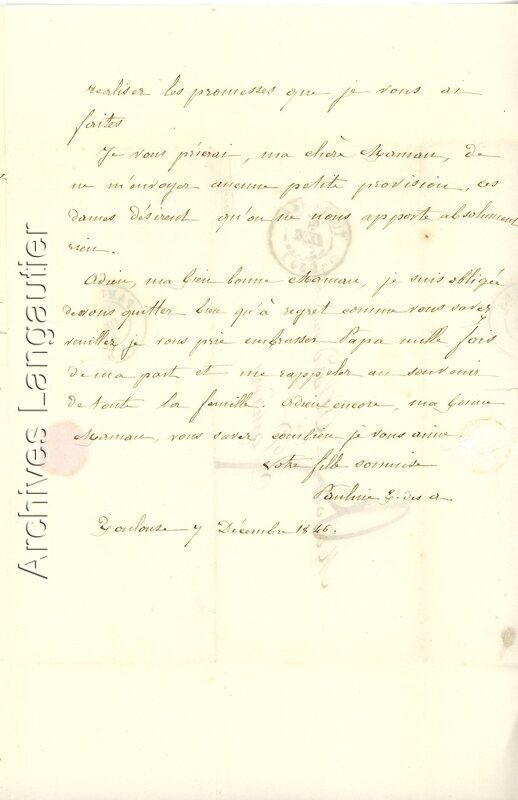 realiser les promesses que je vous ai
faites
Je vous prierai, ma chère Maman, de
ne m'envoyer aucune petite provision, ces
dames désirent qu'on ne nous apporte absolument
rien.
Adieu, ma bien bonne Maman, je suis obligée
de vous quitter bien qu'à regret comme vous savez
veuillez je vous prie embrasser Papa mille fois
de ma part et me rappeler au souvenir
de toute la famille. Adieu encore, ma bonne
Maman, vous savez combien je vous aime.
votre fille soumise
Pauline G. des a.
Toulouse 7 Décembre 1846.
Archives Langautier